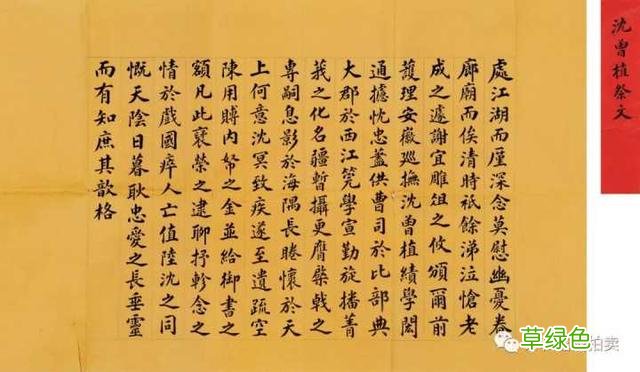 沈曾植祭文
處江湖而厪深念莫慰幽憂眷
廊廟而俟清時祇餘涕泣愴老
成之遽謝宜雕俎之攸頒爾前
護理安徽巡撫沈曾植績學閎
通攄忱忠藎供曹司於比部典
大郡於西江筦學宣勤旋播菁
莪之化名疆暫攝更膺棨戟之
專嗣息影於海隅長睠懷於天
上何意沈冥致疾遂至遺疏空
陳用賻內帑之金並給御書之
額凡此褒榮之逮聊抒軫念之
情於戲國瘁人亡值陸沈之同
慨天陰日暮耿忠愛之長垂靈
而有知庶其歆格
草绿色
拍卖